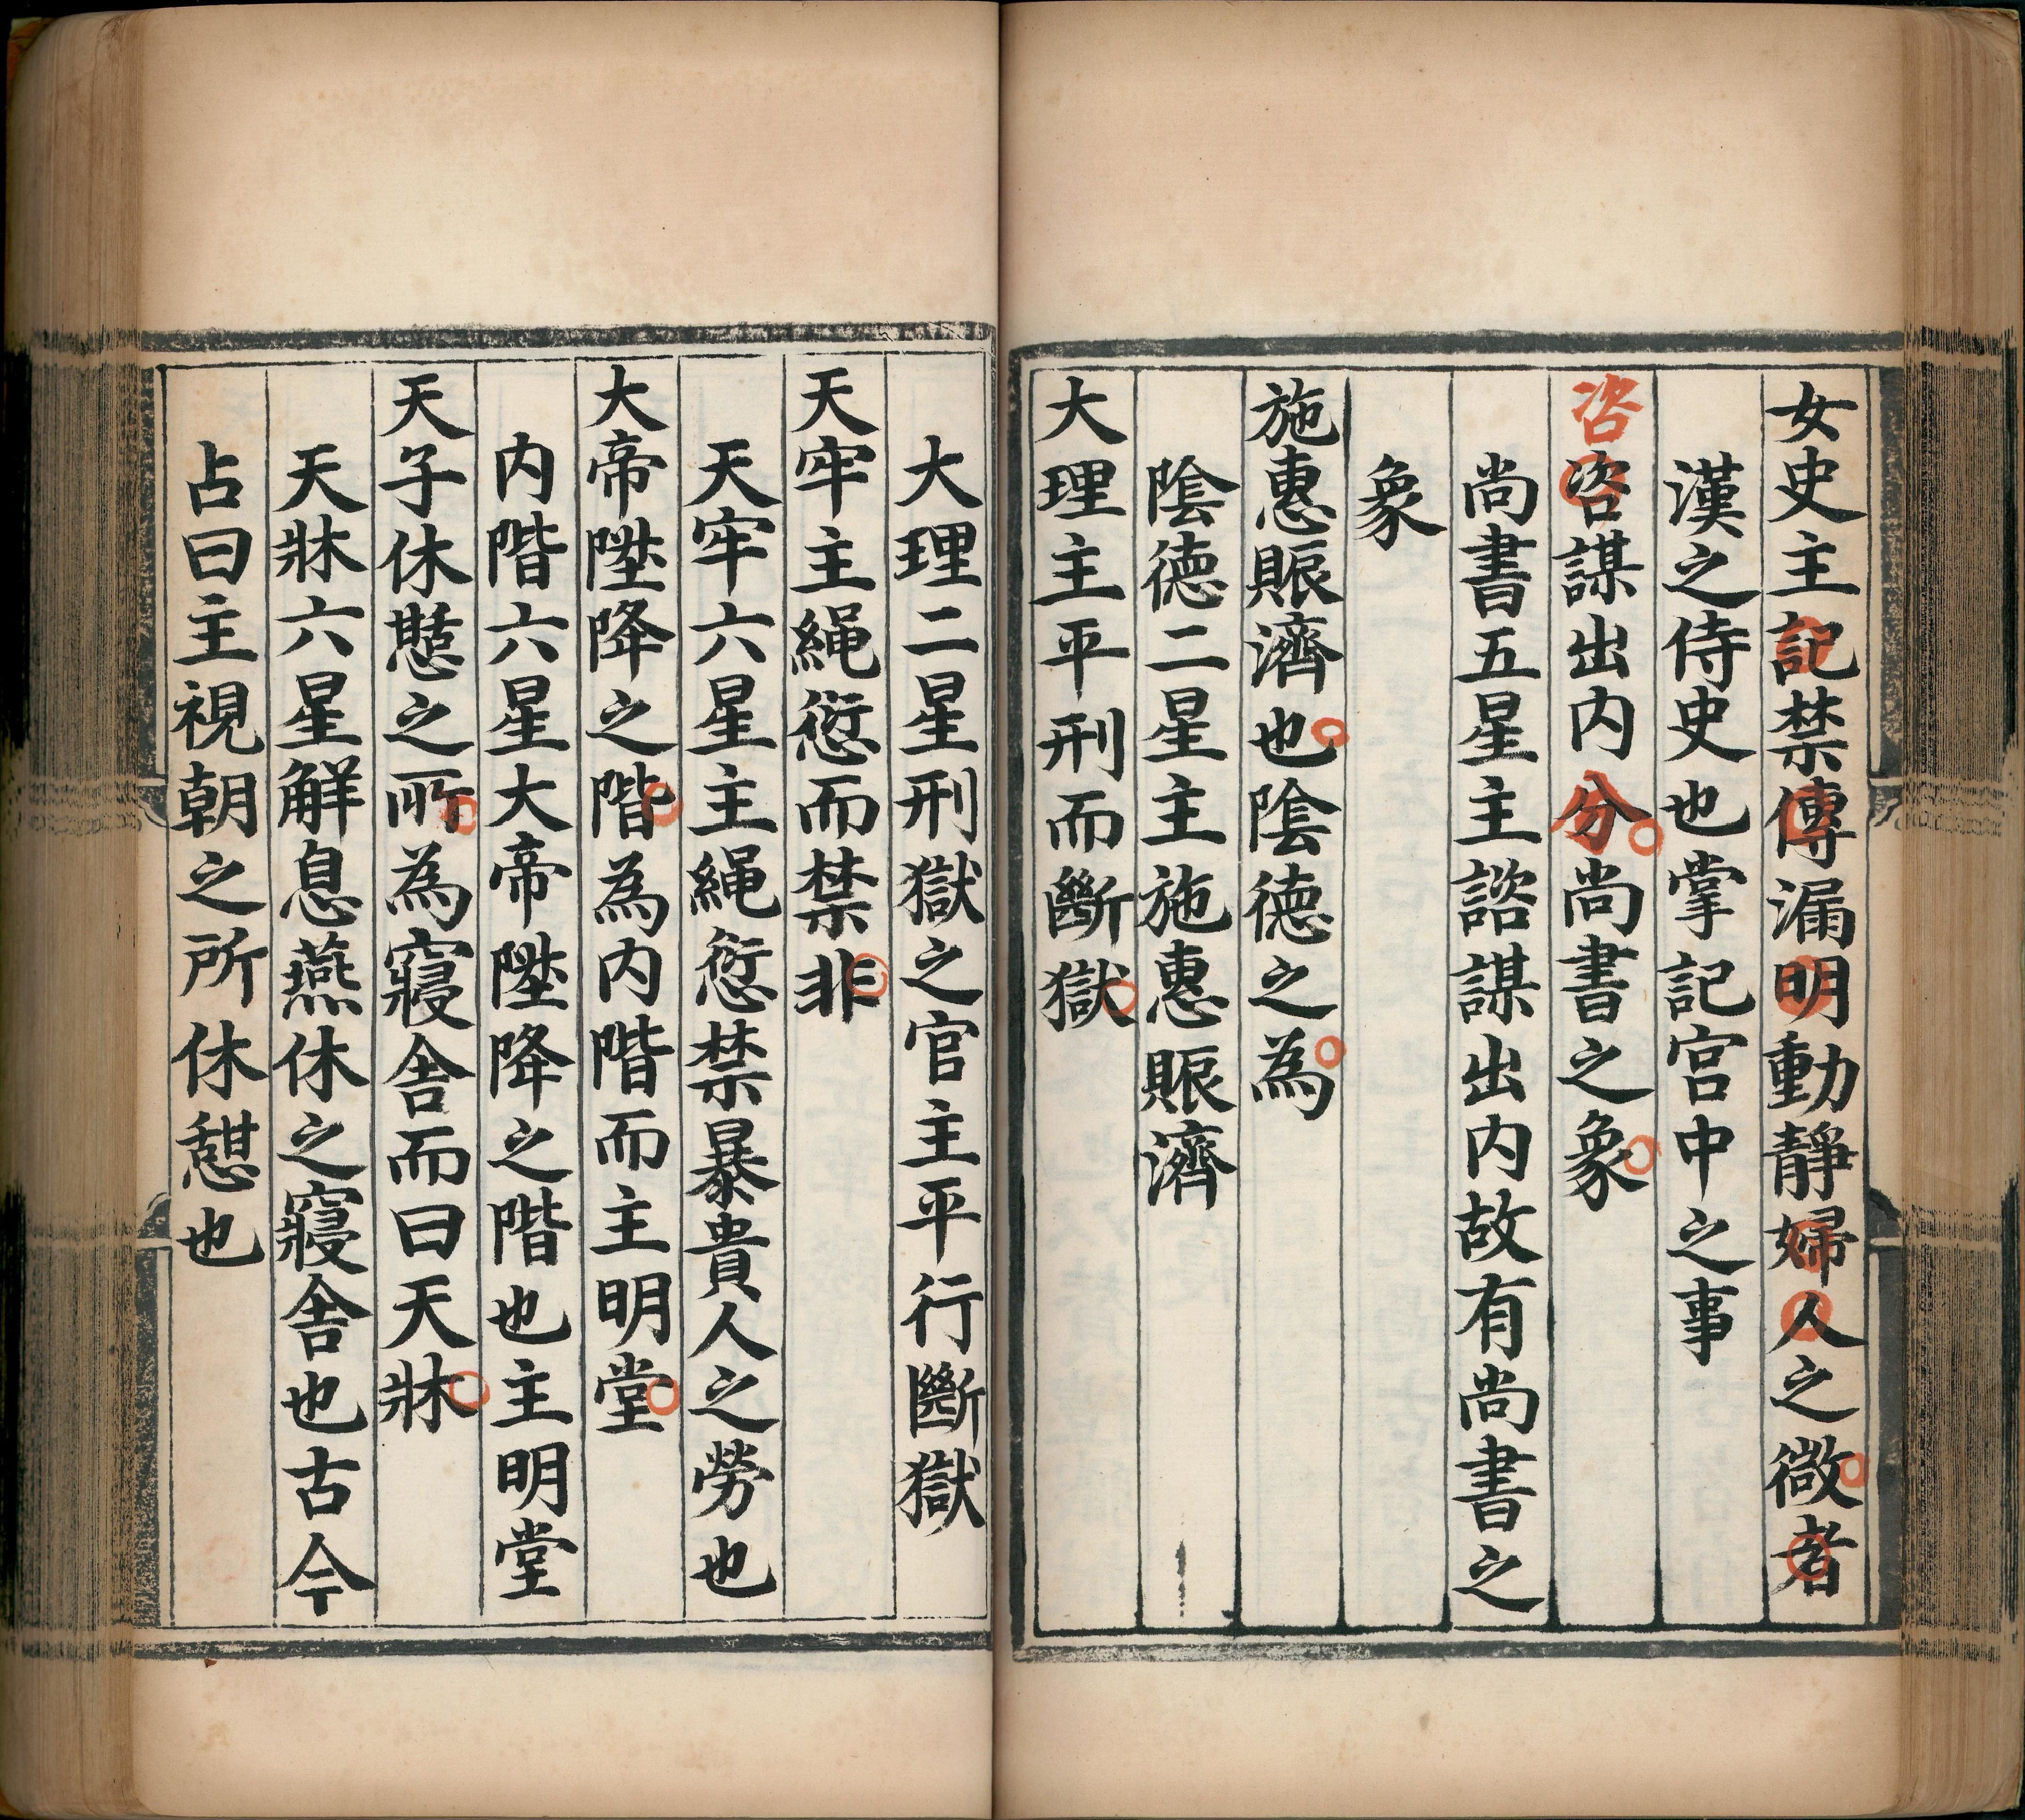 女史主記禁傳漏明動靜婦人之微者
漢之侍史也掌記宮中之事
咨咨謀出内分尚書之象
尚書五星主諮謀出内故有尚書之
象
施惠賑濟也陰德之為
陰德二星主施惠賑濟
大理主平刑而斷獄
大理二星刑獄之官主平行斷獄
天牢主繩愆而禁非
天牢六星主繩愆禁暴貴人之勞也
大帝陞降之階為内階而主明堂
内階六星大帝陞降之階也主明堂
天子休憩之所為寢舍而曰天牀
天牀六星解息燕休之寢舍也古今
占曰主視朝之所休憇也